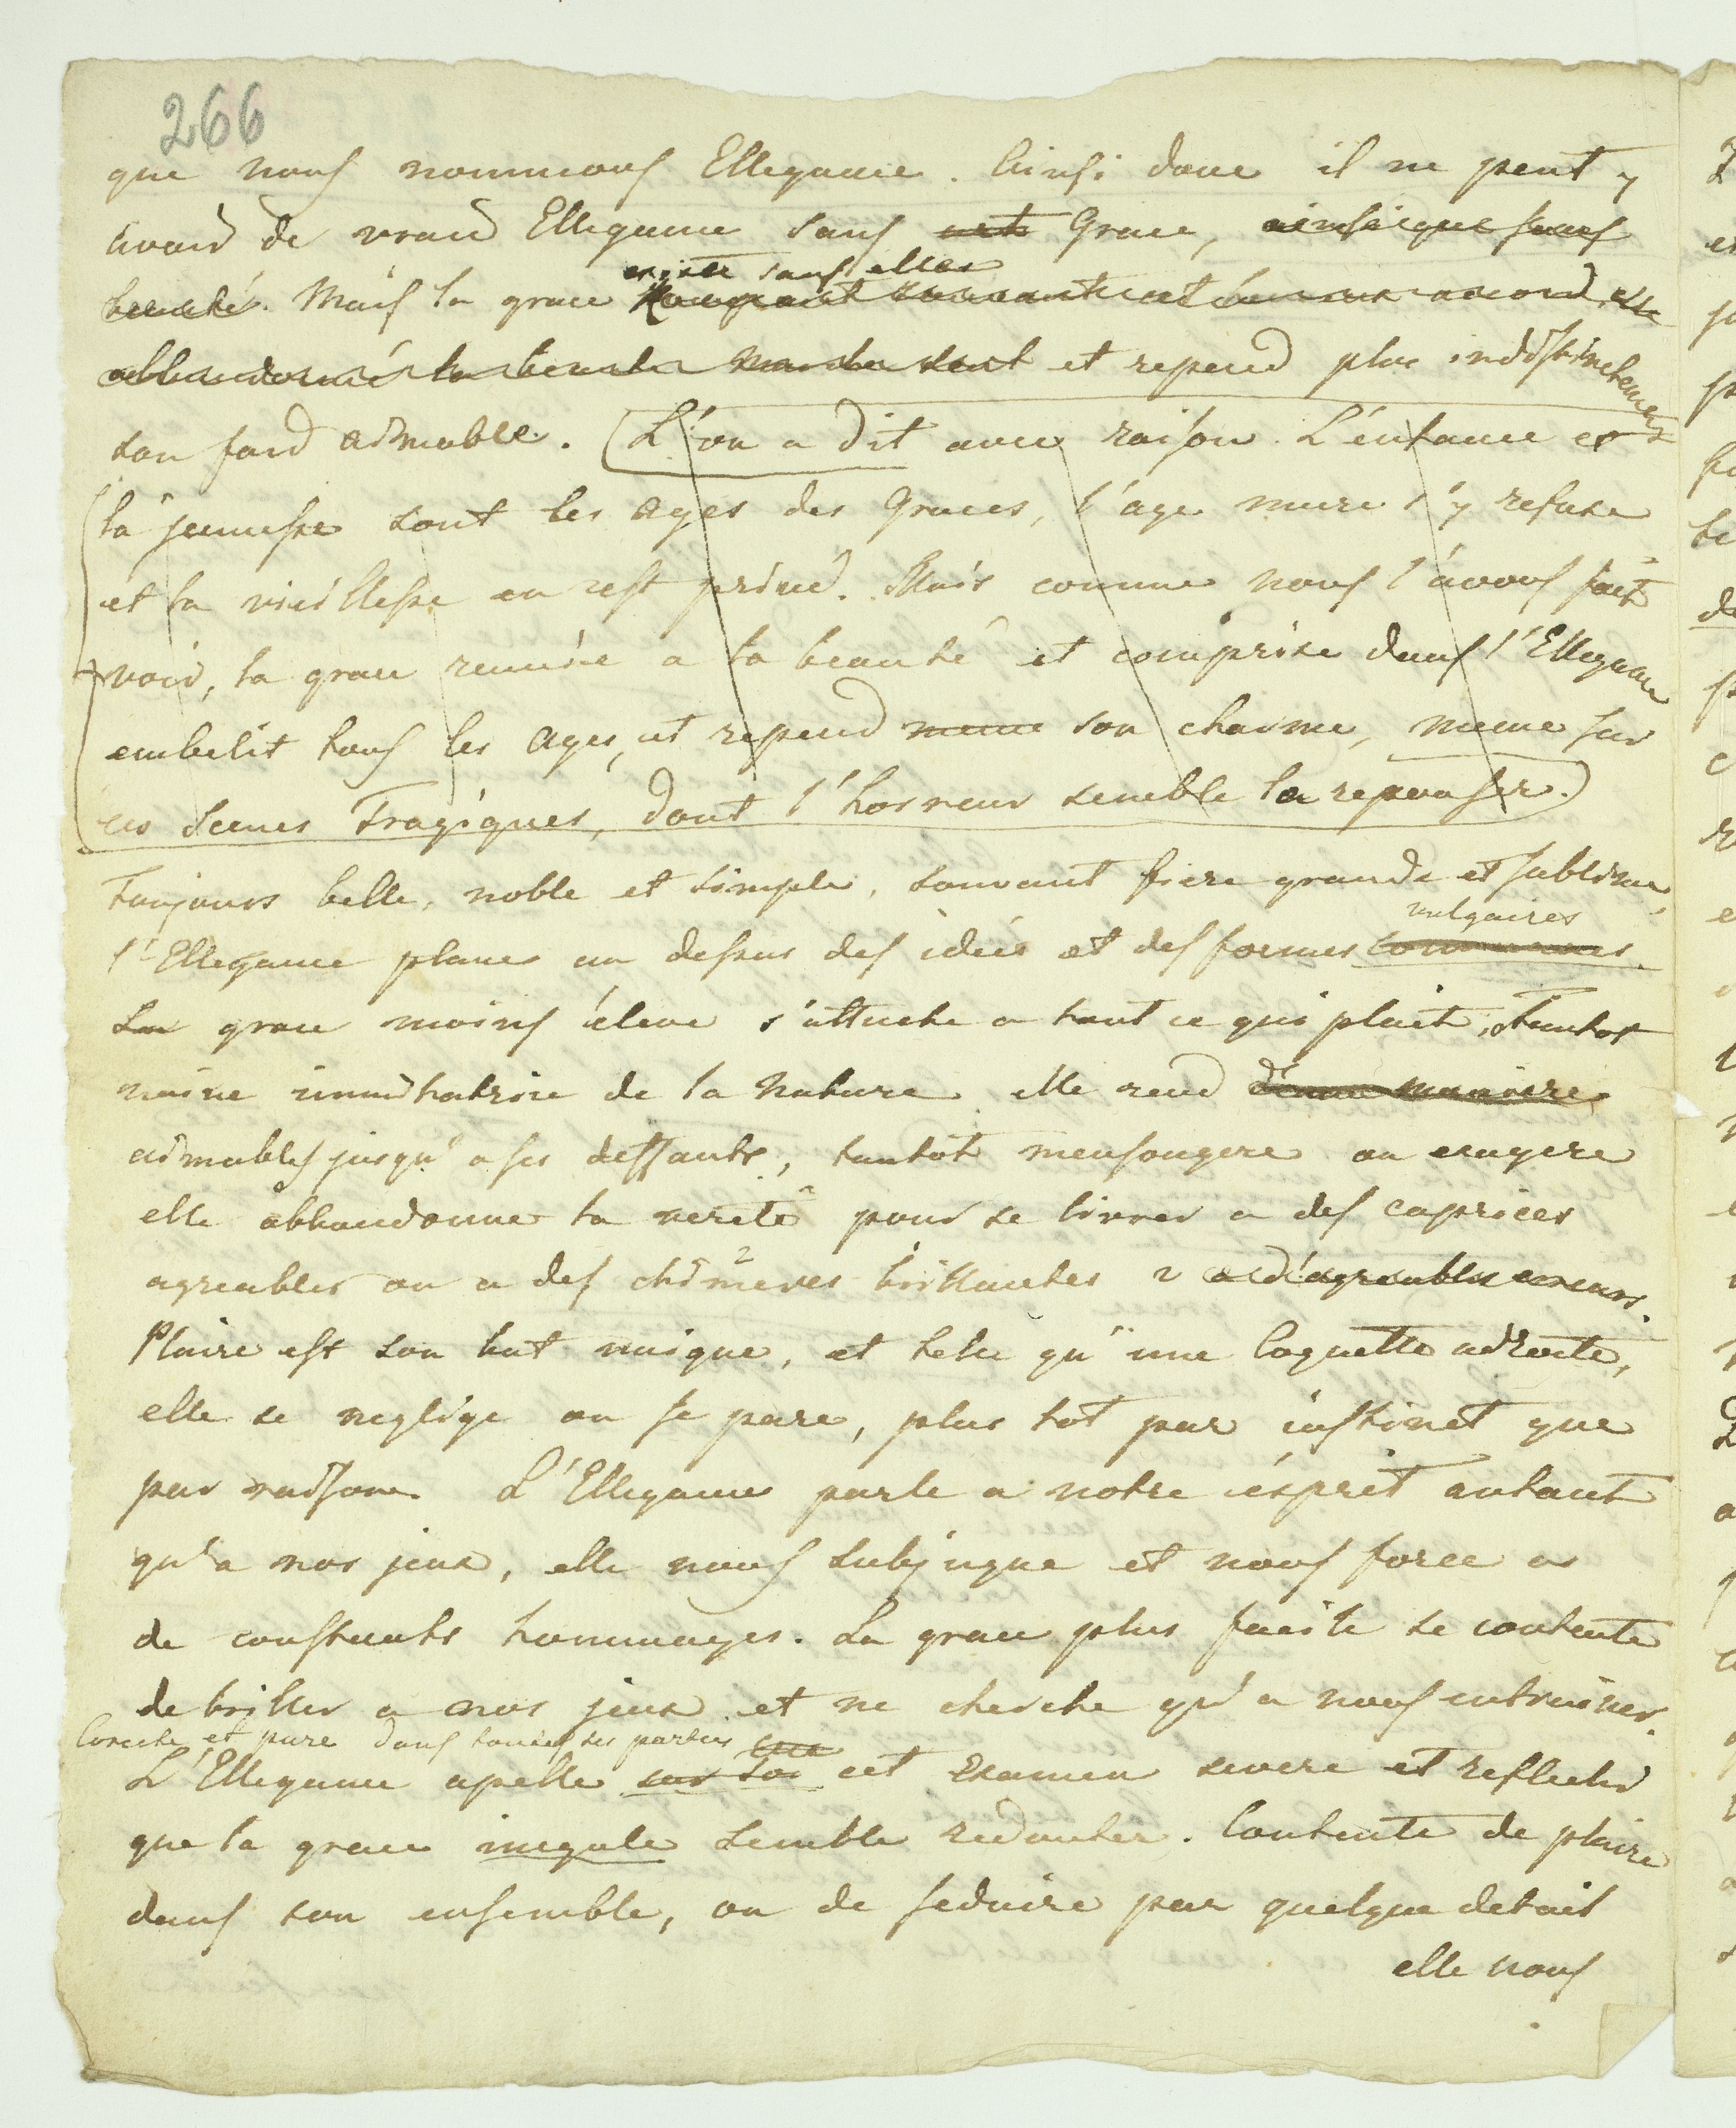 266
que nous nommons Ellegance. Ainsi donc il ne peut y
avoir de vraie Ellegance sans cet Grace, ainsi que sans
beauté. Mais la grace
existe sans elles
et repend plus indistinctement
son fard aimable. (L'on a dit avec raison. L'enfance et
la jeunesse sont les ages des Graces, l'age mure s'y refuse
et la vieillesse en est privé. Mais comme nous l'avons fait
voir, la grace reunie a la beauté et comprise dans l'Ellegance
embelit tous les ages, et repend meme son charme, meme sur
ces Scenes Tragiques, dont l'horreur semble la repousser.)
Toujours belle, noble et simple, souvent fiere grande et sublime,
vulgaires
l'Ellegance plane au dessus des idées et des formes communes.
La grace moins éleve s'attache a tout ce qui plait, Tantot
naive immitatrice de la Nature elle rend d'une maniere
aimables jusqu'a ses deffauts, tantot mensongere ou exagere
elle abbandonne la verité pour se livrer a des caprices
agreables ou a des chimeres brillantes 2 a d'agreables erreurs.
Plaire est son but unique, et telle qu'une Coquette adroite,
elle se neglige ou se pare, plus tot par instinct que
par raison. L'Ellegance parle a notre ésprit autant
qu'a nos jeux, elle nous subjugue et nous force a
de constants hommages. La grace plus facile se contente
de briller a nos jeux et ne cherche qu'a nous entrainer.
Correcte et pure dans toutes ses parties
L'Ellegance apelle sur soi cet Examen severe et reflechi
que la grace inegale semble redouter. Contente de plaire
dans son ensemble, ou de seduire par quelque detail
elle nous